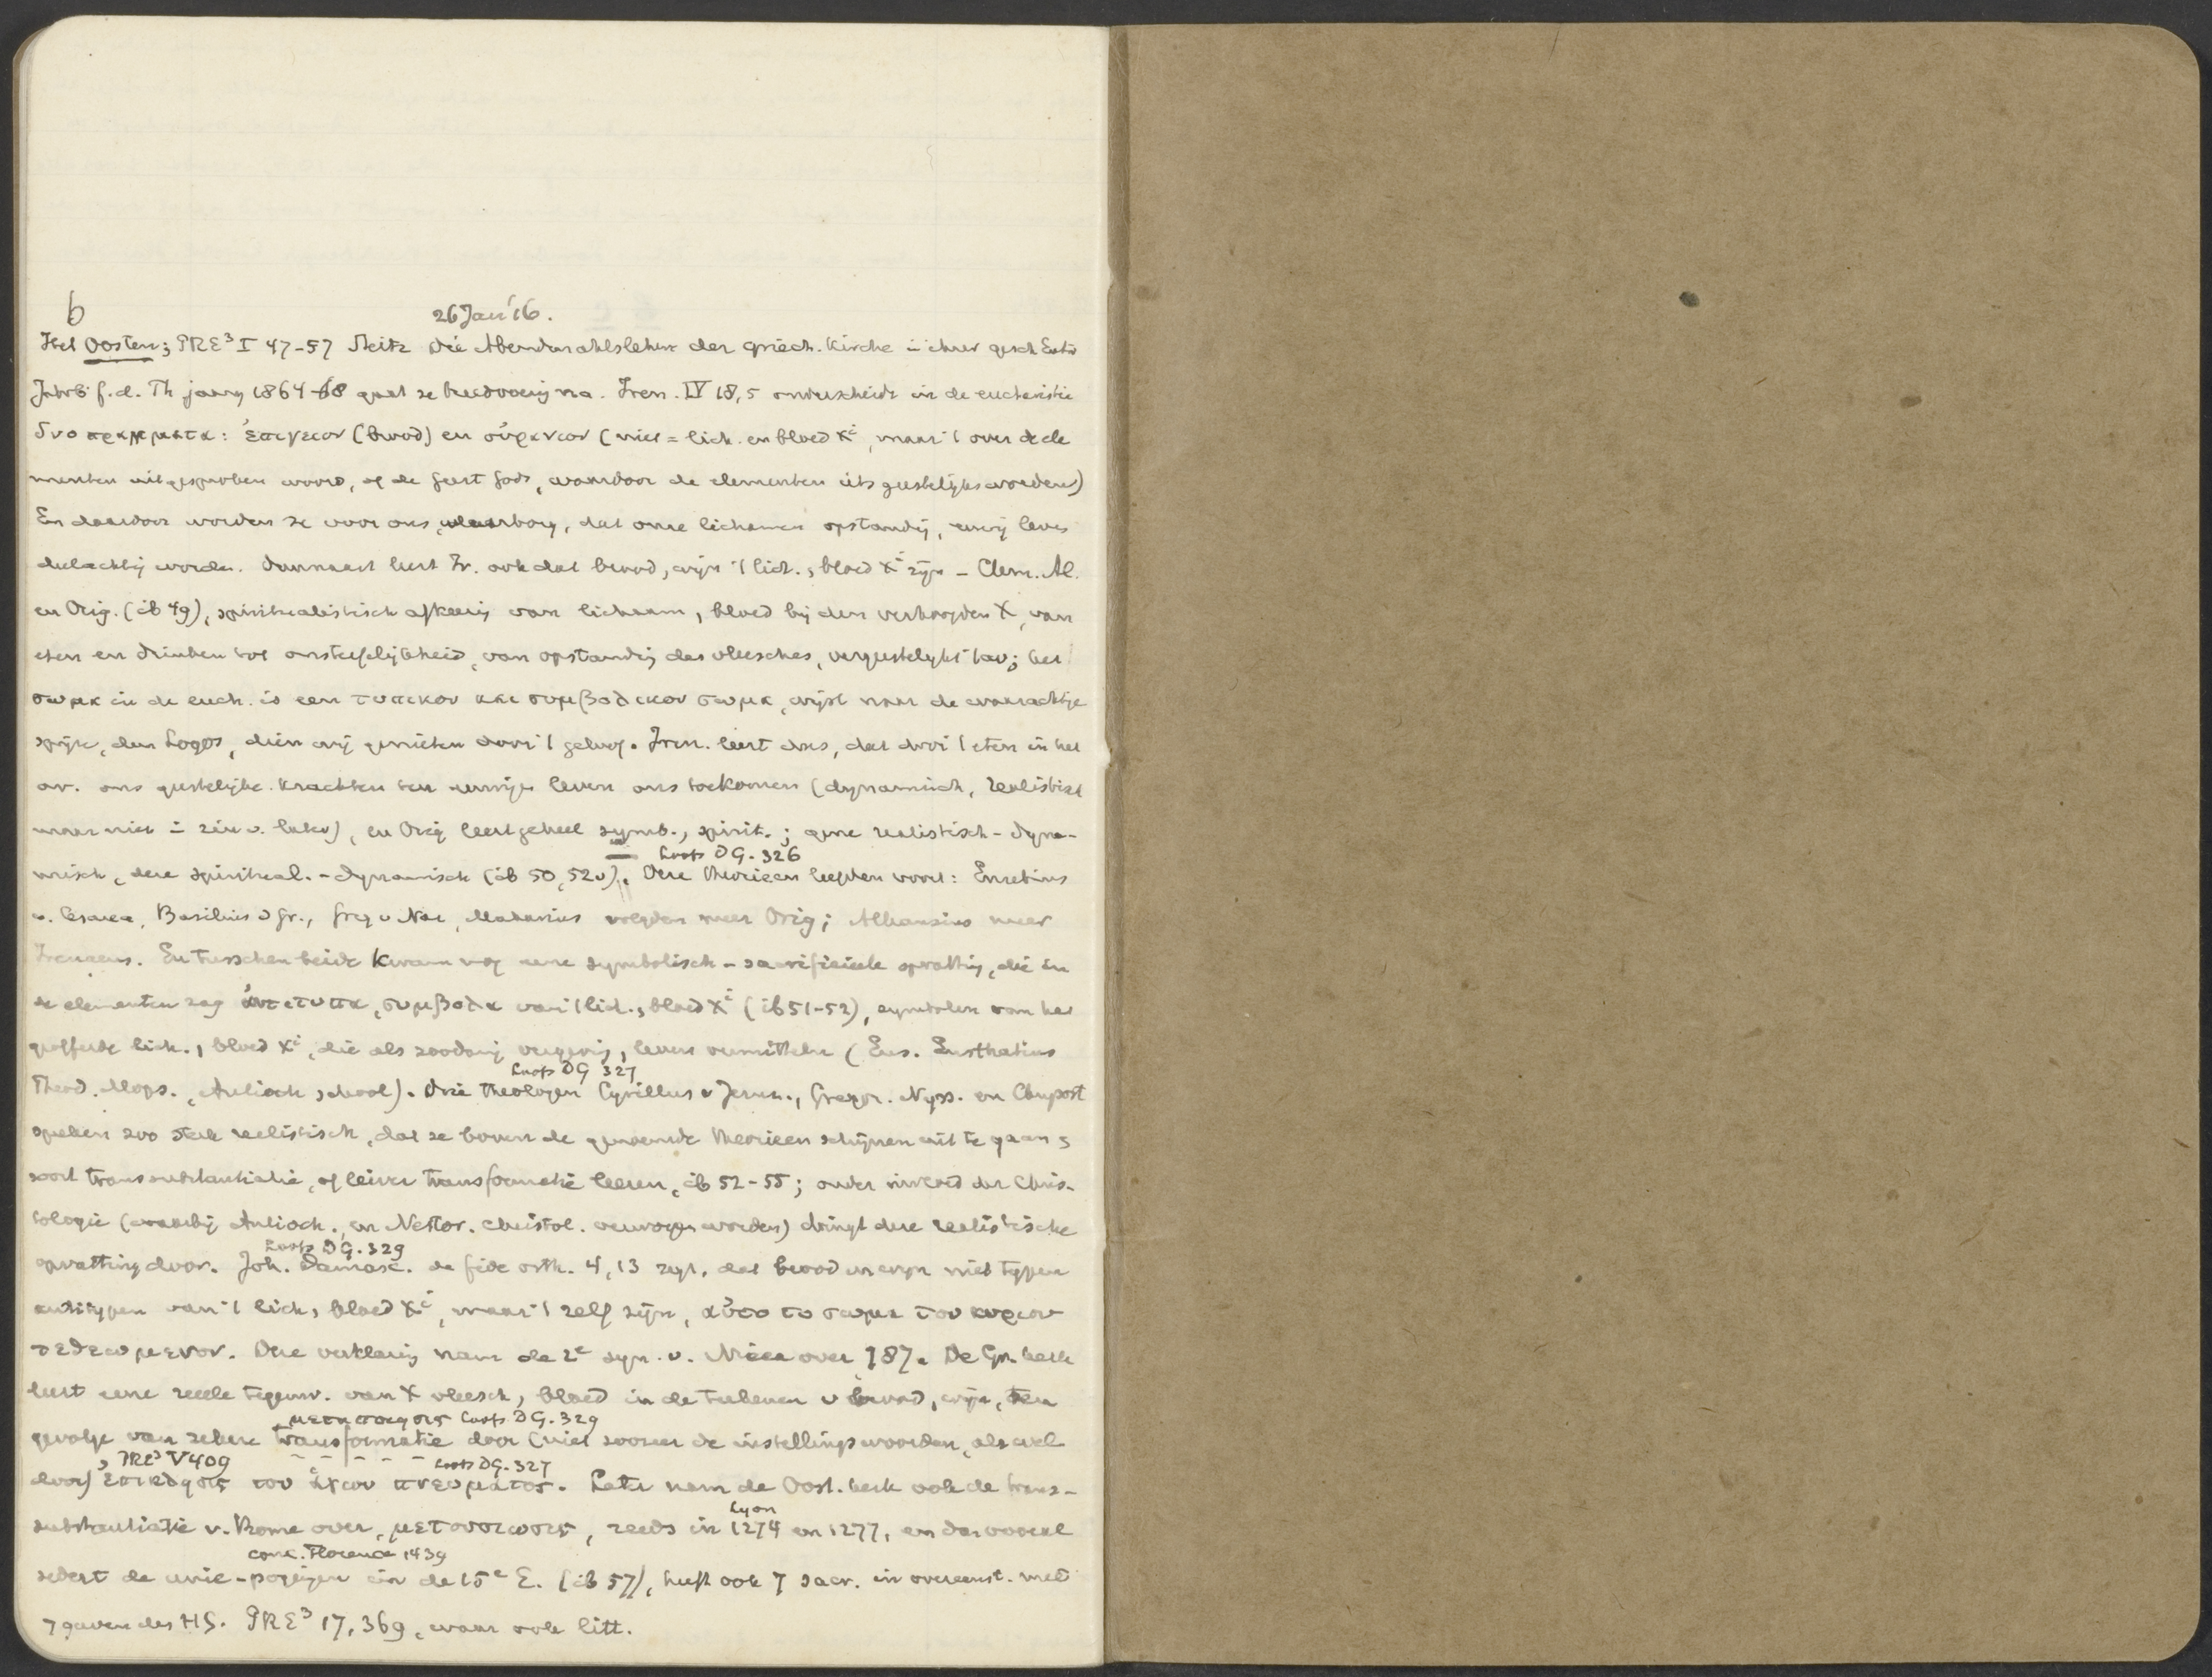 b
26 Jan '16.
Het Oosten; PRE³ I 47-57 Steitz Die Abendmahlslehre der griech. Kirche in ihrer gesch Entw
Jahrb f. d. Th jaarg 1864-68 gaat ze breedvoerig na. Iren. IV 18,5 onderscheidt in de eucharistie
δυο πραγματα: ἐπιγειον (brood) en οὐρανιον (niet = lich. en bloed Xⁱ, maar 't over de ele
menten uitgesproken woord, of de geest Gods, waardoor de elementen iets geestelijks worden)
En daardoor worden ze voor ons waarborg, dat onze lichamen opstanding, eeuwig leven
deelachtig worden. Daarnaast leert Ir. ook dat brood, wijn 't lich., bloed Xⁱ zijn - Clem. Al.
en Orig. (ib 49), spiritualistisch afkeerig van lichaam, bloed bij den verhoogden X, van
eten en drinken tot onsterfelijkheid, van opstanding des vleesches, vergeestelijkt 't av; het
σωμα in de euch. is een τυπικον και συμβολικον σωμα, wijst naar de waarachtige
spijze, den Logos, dien wij genieten door 't geloof. Iren. leert dus, dat door 't eten in het
av. ons geestelijke krachten ten eeuwigen leven ons toekomen (dynamisch, realistisch
maar niet in zin v. later), en Orig leert geheel symb., spirit.; gene realistisch-dyna-
Loofs DG. 326
misch, deze spiritual.-dynamisch (ib 50, 52v). Deze theorieen leefden voort: Eusebius
v. Cesarea, Basilius d Gr., Greg v Naz, Makarius volgden meer Orig; Athanasius meer
Irenaeus. En tusschen beide kwam nog eene symbolisch-sacrificieele opvatting, die in
de elementen zag ἀντιτυπα, συμβολα van 't lich., bloed Xⁱ (ib 51-52), symbolen van het
geofferde lich., bloed Xⁱ, die als zoodanig vergeving, leven vermittelen (Eus. Eusthatius
Loofs DG 327
Theod. Mops., Antioch school). Drie theologen Cyrillus v Jeruz., Gregor. Nyss. en Chrysost
spreken zoo sterk realistisch, dat ze boven de genoemde theorieen schijnen uit te gaan,
soort transsubstantiatie, of liever transformatie leeren, ib 52-55; onder invloed der Chris-
tologie (waarbij Antioch. en Nestor. christol. verworpen worden) dringt deze realistische
Loofs DG. 329
opvatting door. Joh. Damasc. de fide orth. 4, 13 zegt, dat brood en wijn niet typen
antitypen van 't lich, bloed Xⁱ, maar 't zelf zijn, αὐτο το σωμα του κυριου
τεθεωμενον. Deze verklaring nam de 2e syn. v. Nicea over 787. De Gr. kerk
leert eene reele tegenw. van X vleesch, bloed in de teekenen v brood, wijn, ten
μεταποιησις Loofs DG. 329
gevolge van zekere transformatie door (niet zoozeer de instellingswoorden, als wel
, PRE³ V 409 Loofs DG. 327
door) ἐπικλησις του ἁγιου πνευματος. Later nam de Oost. kerk ook de trans-
Lyon
substantiatie v. Rome over, μετουσιωσις, reeds in 1274 en 1277, en dan vooral
conc. Florence 1439
sedert de unie-pogingen in de 15e E. (ib 57), heeft ook 7 sacr. in overeenst. met
7 gaven des H G. PRE³ 17, 369, waar ook litt.